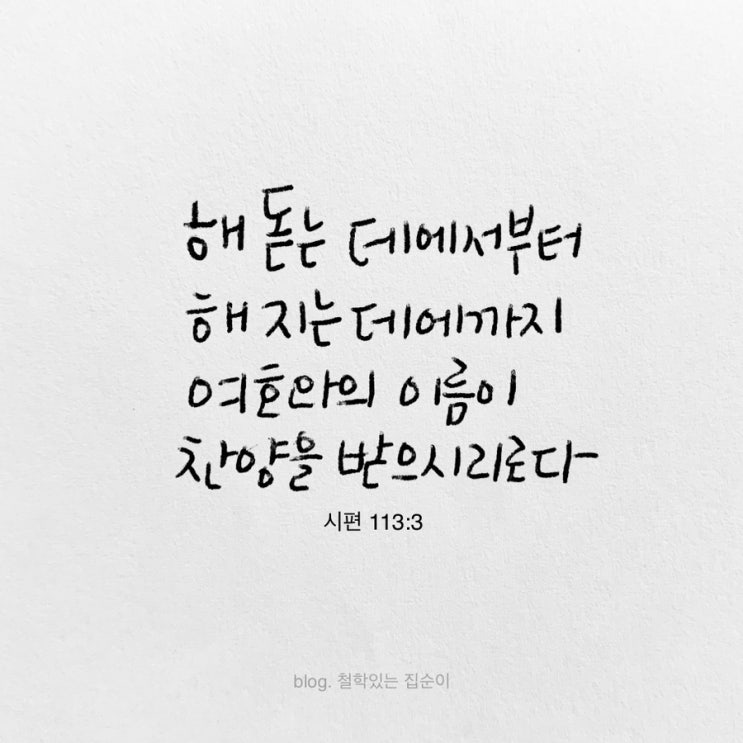 해 돋는 데에서부터
해 지는 데에까지
여호와의 이름이
찬양을 받으시리로다
시편 113:3
blog. 철학있는 집순이